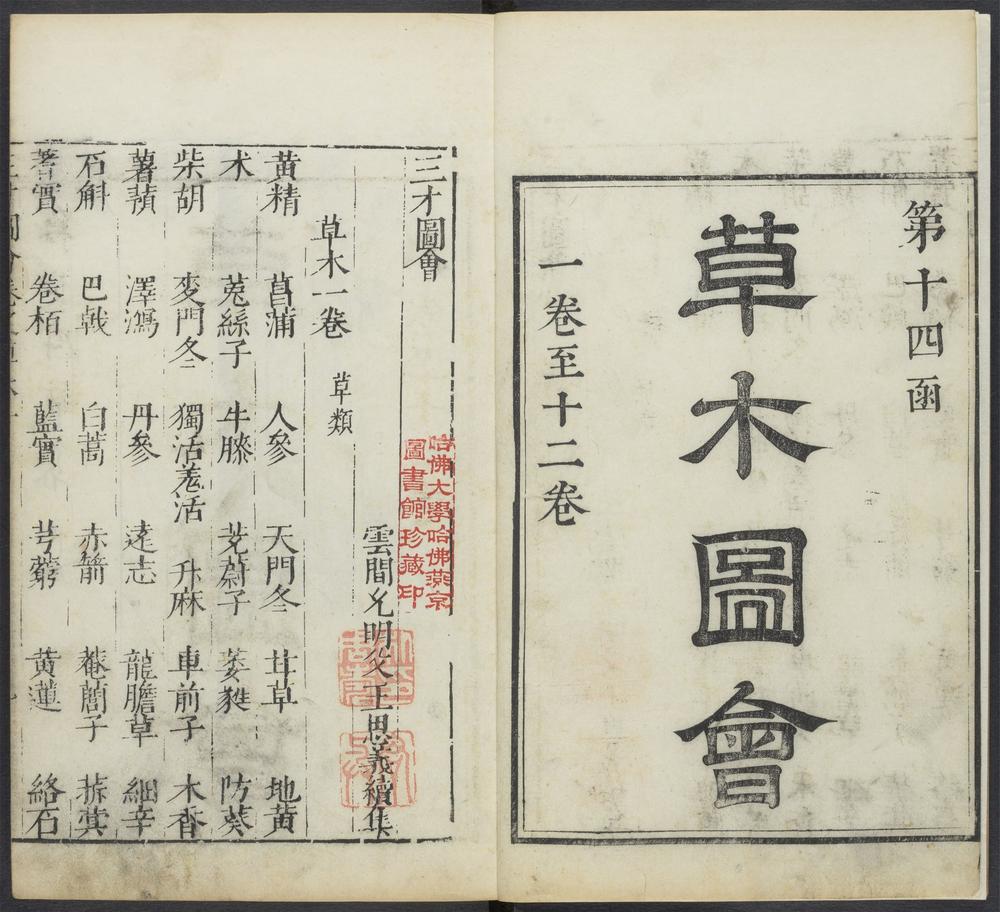 第十四函
草木圖會
一卷至十二卷
三才圖會
哈佛大學哈佛燕京
圖書館珍藏印
雲間允明父王思義續集
草木一卷 草類
黃精 菖蒲 人參 天門冬 甘草 地黃
术 菟絲子 牛膝 茺蔚子 萎蕤 防葵
柴胡 麥門冬 獨活羗活 升麻 車前子 木香
薯蕷 澤瀉 丹參 遠志 龍膽草 細辛
石斛 巴戟 白蒿 赤箭 菴䕡子 菥蓂
蓍實 卷栢 藍實 芎藭 黃蓮 絡石